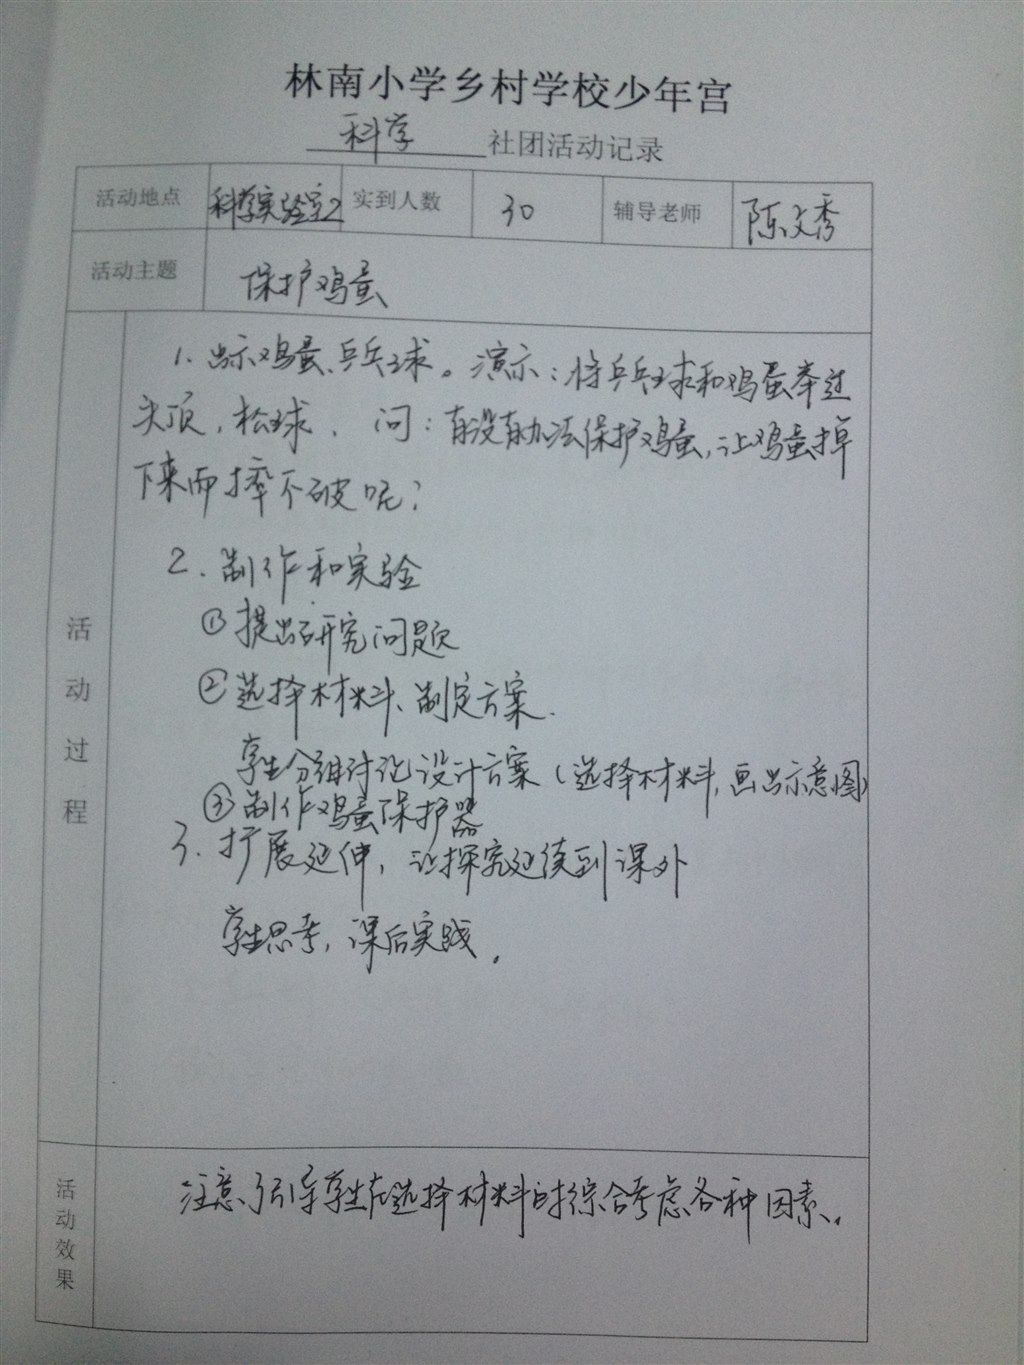 林南小学乡村学校少年宫
科学 社团活动记录
活动地点 科学实验室2 实到人数 30 辅导老师 陈文秀
活动主题 保护鸡蛋
活动过程
1. 出示鸡蛋、乒乓球。演示：将乒乓球和鸡蛋举过
头顶，松球、 问：有没有办法保护鸡蛋，让鸡蛋掉
下来而摔不破呢？
2. 制作和实验
①提出研究问题
②选择材料、制定方案.
学生分组讨论设计方案（选择材料，画出示意图）
③制作鸡蛋保护器
3. 扩展延伸，让探究延续到课外
学生思考，课后实践。
活动效果
注意引导学生在选择材料时综合考虑各种因素。